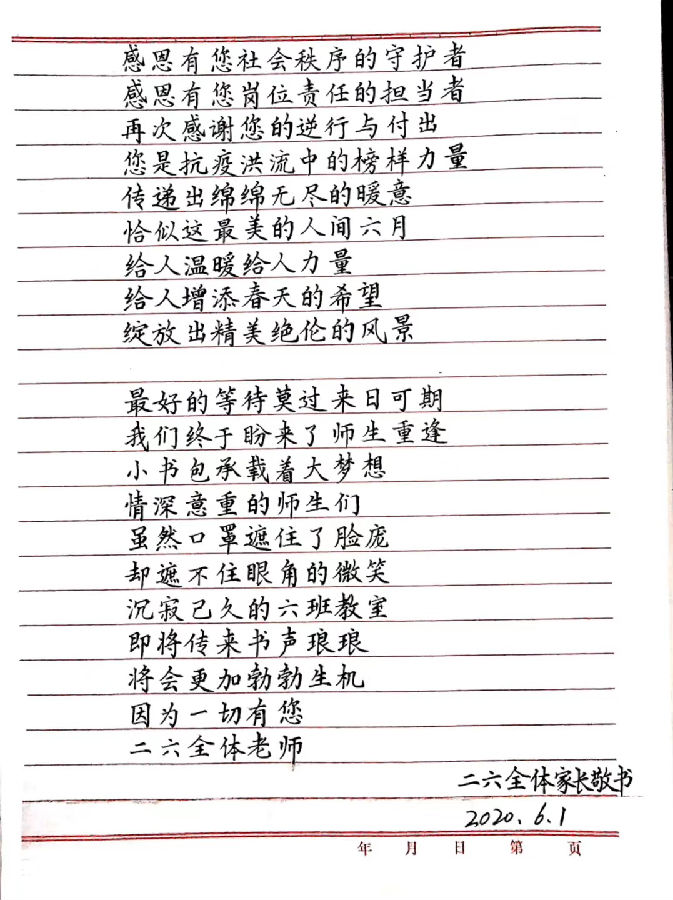 感恩有您社会秩序的守护者
感恩有您岗位责任的担当者
再次感谢您的逆行与付出
您是抗疫洪流中的榜样力量
传递出绵绵无尽的暖意
恰似这最美的人间六月
给人温暖给人力量
给人增添春天的希望
绽放出精美绝伦的风景
最好的等待莫过来日可期
我们终于盼来了师生重逢
小书包承载着大梦想
情深意重的师生们
虽然口罩遮住了脸庞
却遮不住眼角的微笑
沉寂已久的六班教室
即将传来书声琅琅
将会更加勃勃生机
因为一切有您
二六全体老师
二六全体家长敬书
2020.6.1
年 月 日 第 页